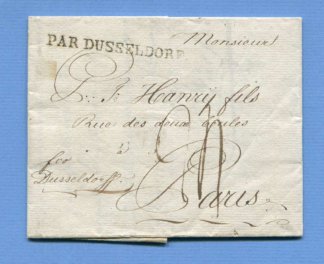 PAR DUSSELDORF
Monsieur
P. J. Hanrij fils
Rue des deux Boules
à
Paris
fco
Dusseldorff